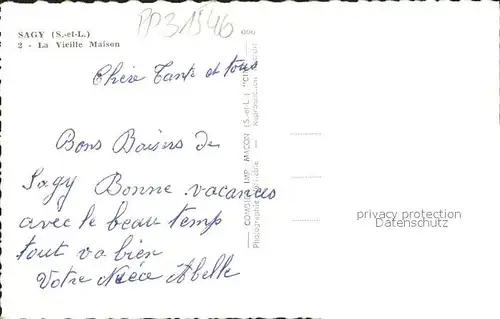 SAGY (S.-et-L.)
2 - La Vieille Maison
PP31546
Chère Tante et tous
Bons Baisers de
Sagy Bonne vacances
avec le beau temp
tout va bien
Votre Nièce Abelle
COMBIER IMP. MACON (S.-et-L.) "CIM"
Photographie Véritable — Reproduction
privacy protection
Datenschutz